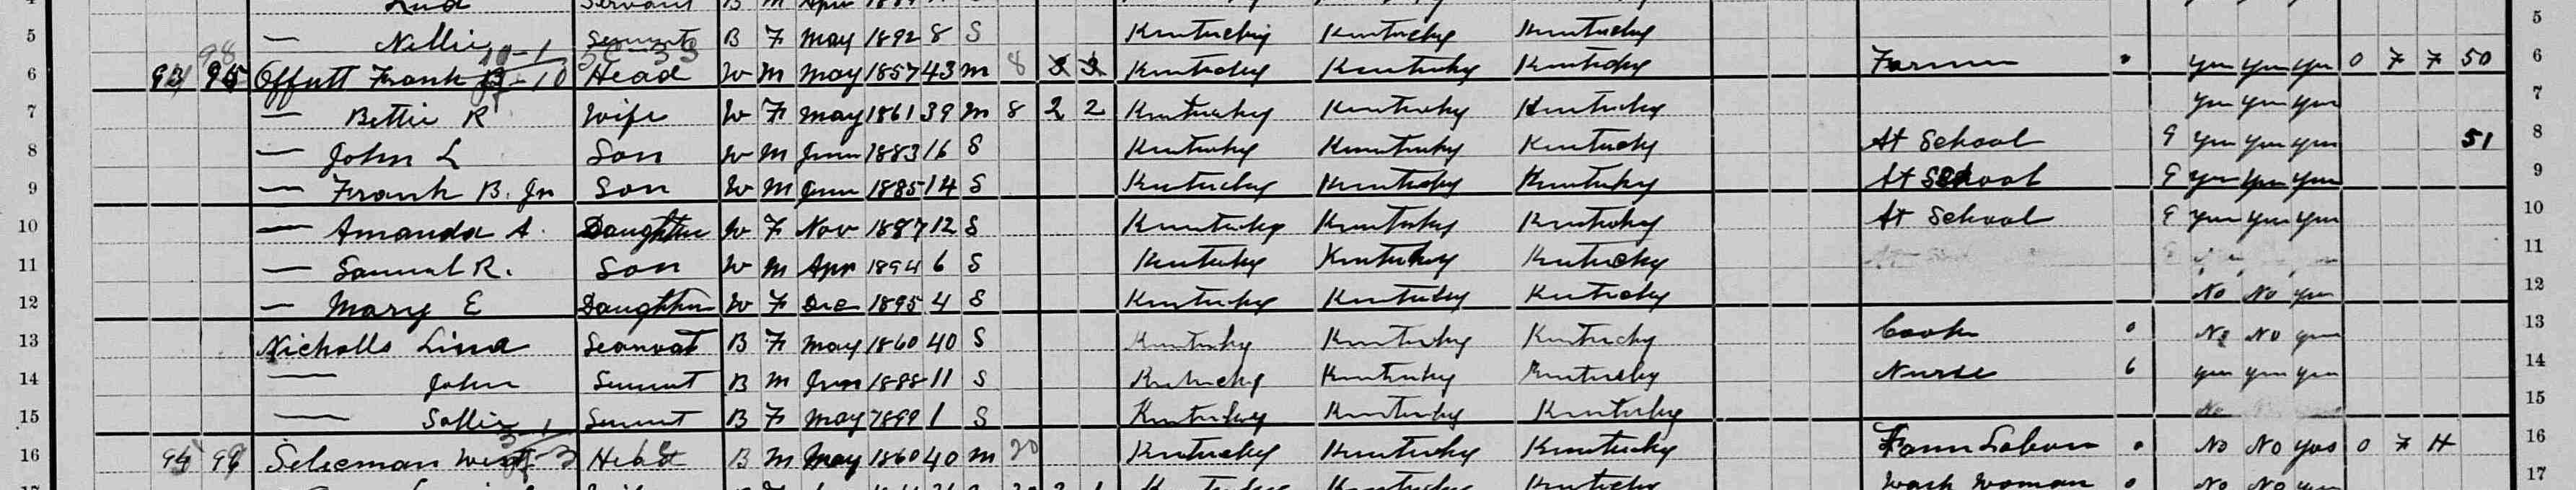 Lina Servant B M Apr
5 — Nellie Servant B F May 1892 8 S Kentucky Kentucky Kentucky 5
6 93 95 Offutt Frank B Head W M May 1857 43 M 8 Kentucky Kentucky Kentucky Farmer 0 yes yes yes O F F 50 6
7 — Bettie R Wife W F May 1861 39 M 8 2 2 Kentucky Kentucky Kentucky yes yes yes 7
8 — John L Son W M June 1883 16 S Kentucky Kentucky Kentucky At School 9 yes yes yes 51 8
9 — Frank B. Jr Son W M June 1885 14 S Kentucky Kentucky Kentucky At School 9 yes yes yes 9
10 — Amanda A. Daughter W F Nov 1887 12 S Kentucky Kentucky Kentucky At School 9 yes yes yes 10
11 — Samuel R. Son W M Apr 1894 6 S Kentucky Kentucky Kentucky 11
12 — Mary E Daughter W F Dec 1895 4 S Kentucky Kentucky Kentucky No No yes 12
13 Nicholls Lina Servant B F May 1860 40 S Kentucky Kentucky Kentucky Cook 0 No No yes 13
14 — John Servant B M June 1888 11 S Kentucky Kentucky Kentucky Nurse 6 yes yes yes 14
15 — Sallie Servant B F May 1899 1 S Kentucky Kentucky Kentucky 15
16 94 96 Sleeman West Head B M May 1860 40 M 20 Kentucky Kentucky Kentucky Farm Labor 0 No No yes O F H 16
17 Kentucky Kentucky Kentucky Wash Woman 0 No No yes 17